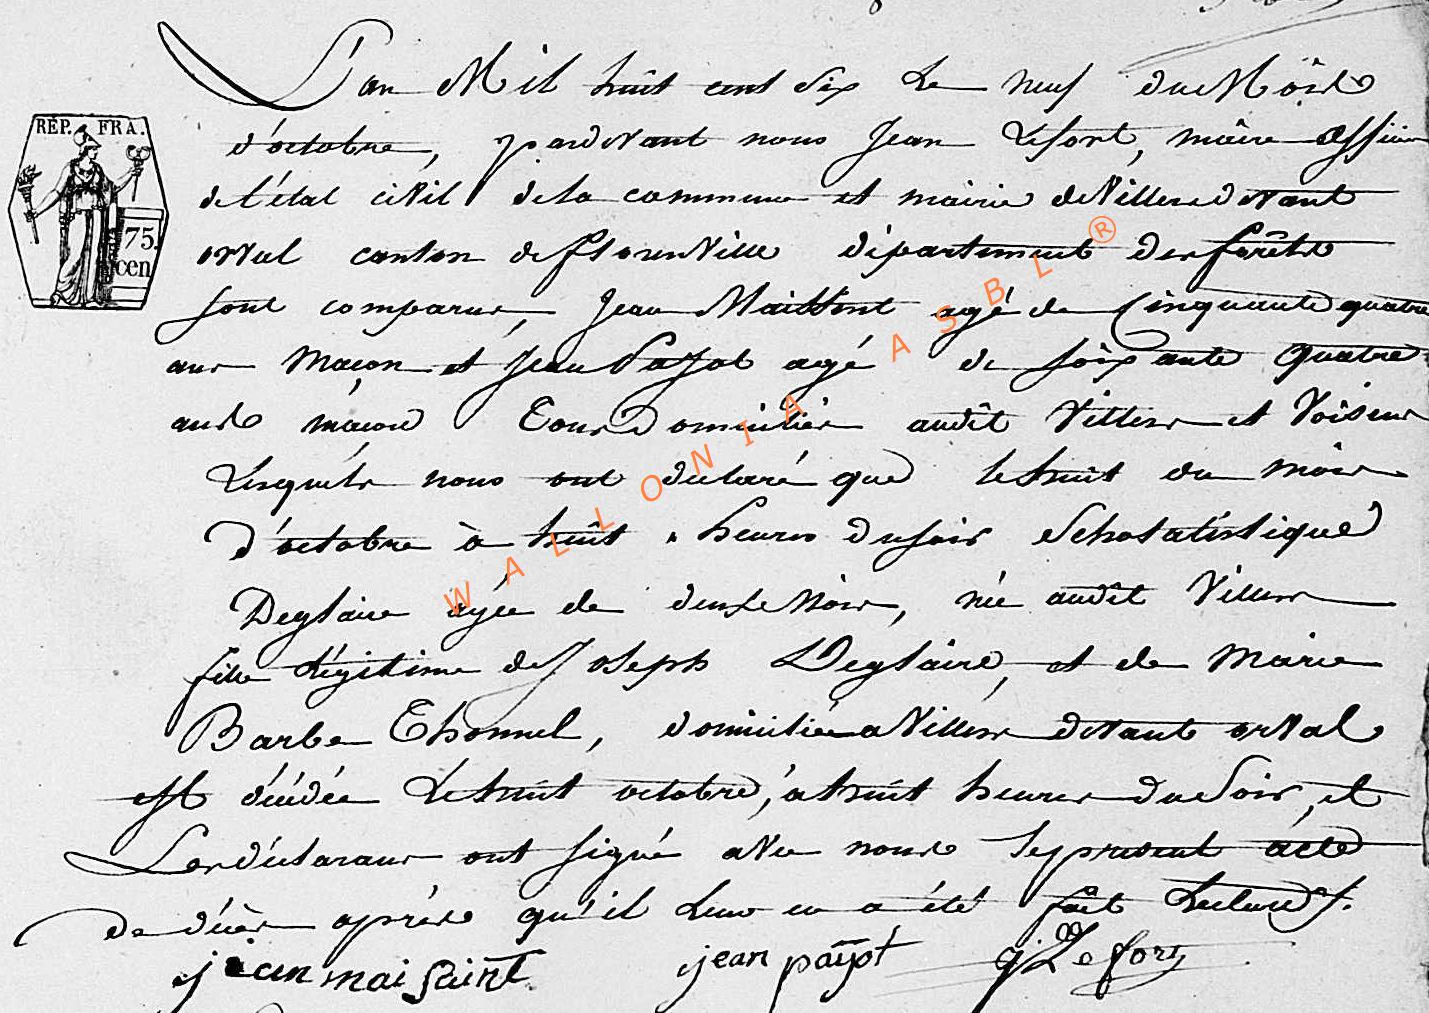 L'an Mil huit cent dix Le neuf du Mois
RÉP. FRA.
75.
cen
d'octobre, pardevant nous Jean Lefort, maire officier
de l'état civil de la commune et mairie de Villers devant
orval canton de florenville département des forêts
sont comparus, Jean Maissent agé de Cinquante quatre
ans maçon et Jean Payot agé de soixante quatre
ans maçon Tous Domicilies audit Villers et Voisins
Lesquels nous ont declaré que le huit du mois
d'octobre à huit heures du soir Scholastique
Deglaire agée de deuse Mois, née audit Villers
fille Légitime de Joseph Deglaire, et de Marie
Barbe Thonnel, domiciliée a Villers devant orval
est décédée Le huit octobre, a huit heures du Soir, et
Les déclarans ont signé avec nous le present acte
de décès après qu'il leur en a été fait Lecture
jean mai saint jean payot j Lefort
WALLONIA ASBL ®